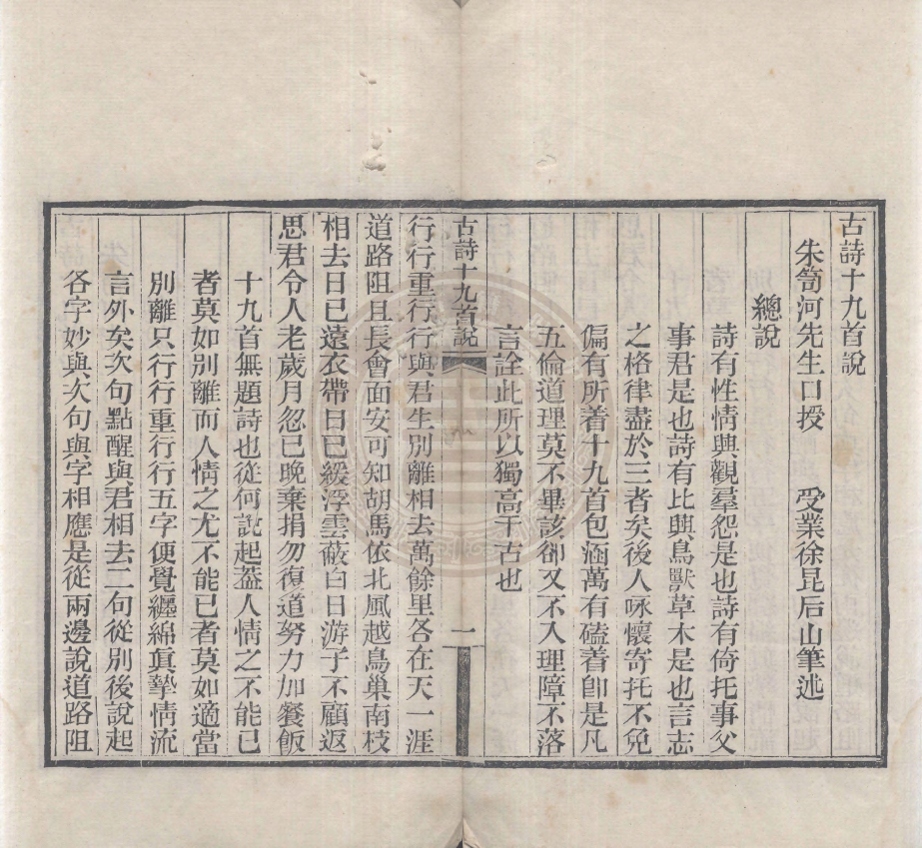 古詩十九首說
朱笥河先生口授　受業徐昆后山筆述
總說
詩有性情興觀羣怨是也詩有倚托事父
事君是也詩有比興鳥獸草木是也言志
之格律盡於三者矣後人咏懷寄托不免
偏有所着十九首包涵萬有磕着卽是凡
五倫道理莫不畢該卻又不入理障不落
言詮此所以獨高千古也
古詩十九首說　一
行行重行行與君生別離相去萬餘里各在天一涯
道路阻且長會面安可知胡馬依北風越鳥巢南枝
相去日已遠衣帶日已緩浮雲蔽白日游子不顧返
思君令人老歲月忽已晚棄捐勿復道努力加餐飯
十九首無題詩也從何說起蓋人情之不能已
者莫如別離而人情之尤不能已者莫如適當
別離只行行重行行五字便覺纏綿眞摯情流
言外矣次句點醒與君相去二句從別後說起
各字妙與次句與字相應是從兩邊說道路阻